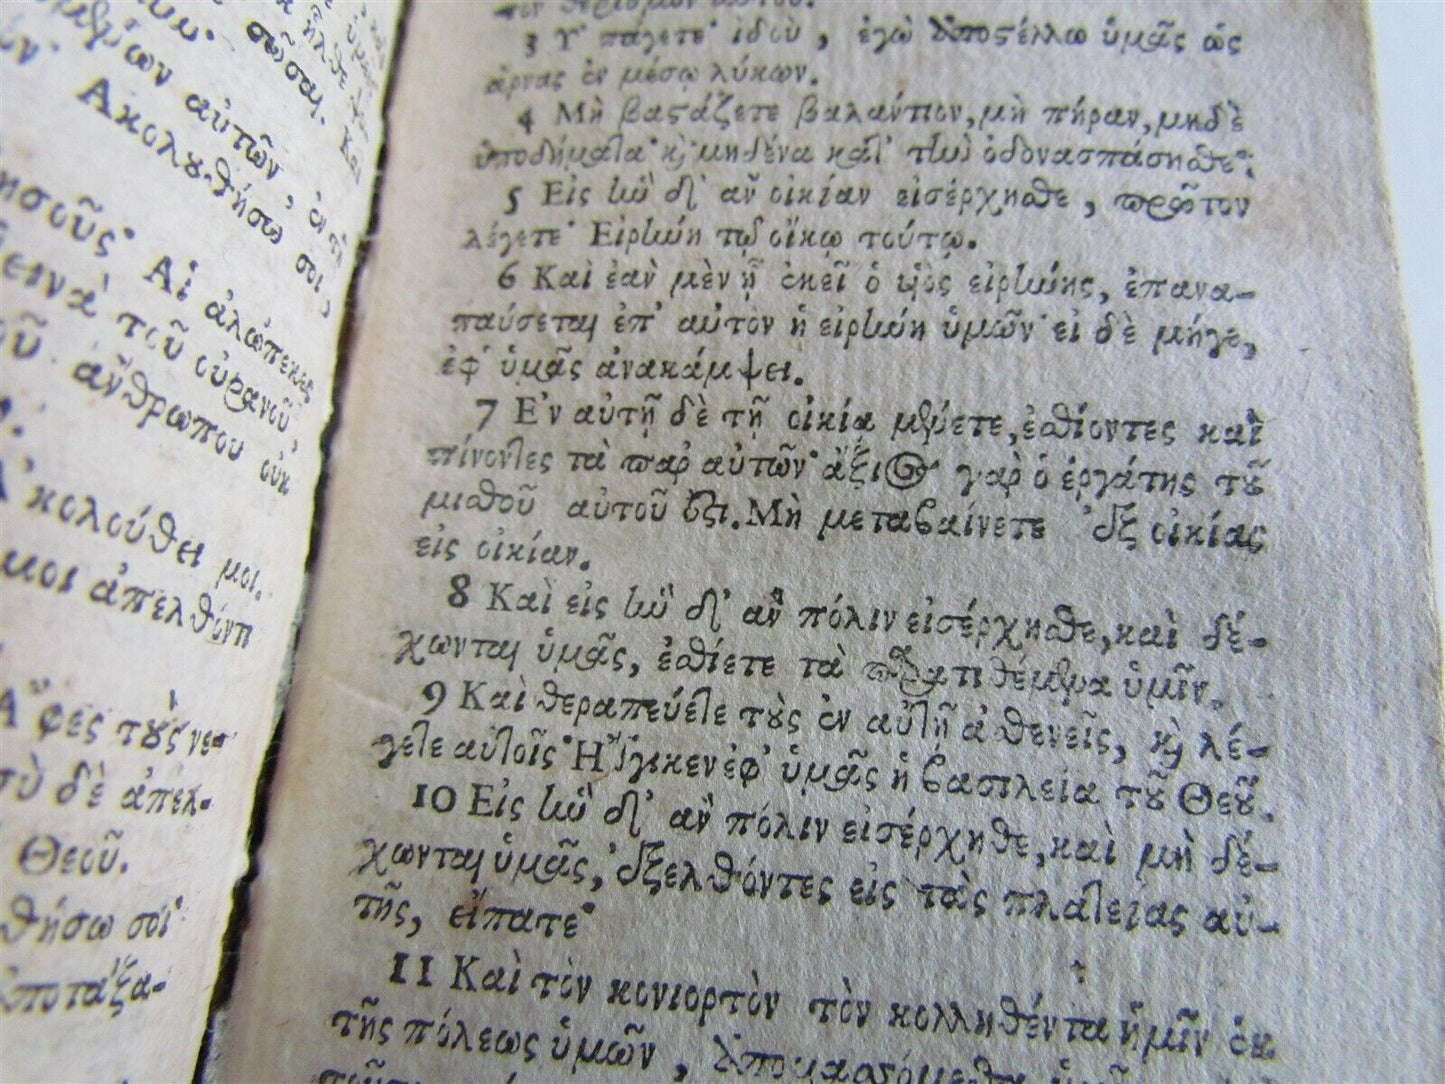 σῶσαι. Καὶ
αὐτῶν, ἐν τῇ
Ἀκολουθήσω σοι,
Αἱ ἀλώπεκες
τοῦ οὐρανοῦ,
ἀνθρώπου οὐκ
Ἀκολούθει μοι.
μοι ἀπελθόντι
Ἄφες τοὺς νε-
σὺ δὲ ἀπελ-
Θεοῦ.
θήσω σοι·
ἀποτάξα-
τὸν θερισμὸν αὐτοῦ.
3 Ὑπάγετε· ἰδοὺ, ἐγὼ ἀποστέλλω ὑμᾶς ὡς
ἄρνας ἐν μέσῳ λύκων.
4 Μὴ βαστάζετε βαλάντιον, μὴ πήραν, μηδὲ
ὑποδήματα· καὶ μηδένα κατὰ τὴν ὁδὸν ἀσπάσησθε·
5 Εἰς ἣν δ' ἂν οἰκίαν εἰσέρχησθε, πρῶτον
λέγετε· Εἰρήνη τῷ οἴκῳ τούτῳ.
6 Καὶ ἐὰν μὲν ᾖ ἐκεῖ ὁ υἱὸς εἰρήνης, ἐπανα-
παύσεται ἐπ' αὐτὸν ἡ εἰρήνη ὑμῶν· εἰ δὲ μήγε,
ἐφ' ὑμᾶς ἀνακάμψει.
7 Ἐν αὐτῇ δὲ τῇ οἰκίᾳ μένετε, ἐσθίοντες καὶ
πίνοντες τὰ παρ' αὐτῶν· ἄξιος γὰρ ὁ ἐργάτης τοῦ
μισθοῦ αὐτοῦ ἐστι. Μὴ μεταβαίνετε ἐξ οἰκίας
εἰς οἰκίαν.
8 Καὶ εἰς ἣν δ' ἂν πόλιν εἰσέρχησθε, καὶ δέ-
χωνται ὑμᾶς, ἐσθίετε τὰ παρατιθέμενα ὑμῖν.
9 Καὶ θεραπεύετε τοὺς ἐν αὐτῇ ἀσθενεῖς, καὶ λέ-
γετε αὐτοῖς· Ἤγγικεν ἐφ' ὑμᾶς ἡ βασιλεία τοῦ Θεοῦ.
10 Εἰς ἣν δ' ἂν πόλιν εἰσέρχησθε, καὶ μὴ δέ-
χωνται ὑμᾶς, ἐξελθόντες εἰς τὰς πλατείας αὐ-
τῆς, εἴπατε·
11 Καὶ τὸν κονιορτὸν τὸν κολληθέντα ἡμῖν ἐκ
τῆς πόλεως ὑμῶν, ἀπομασσόμεθα